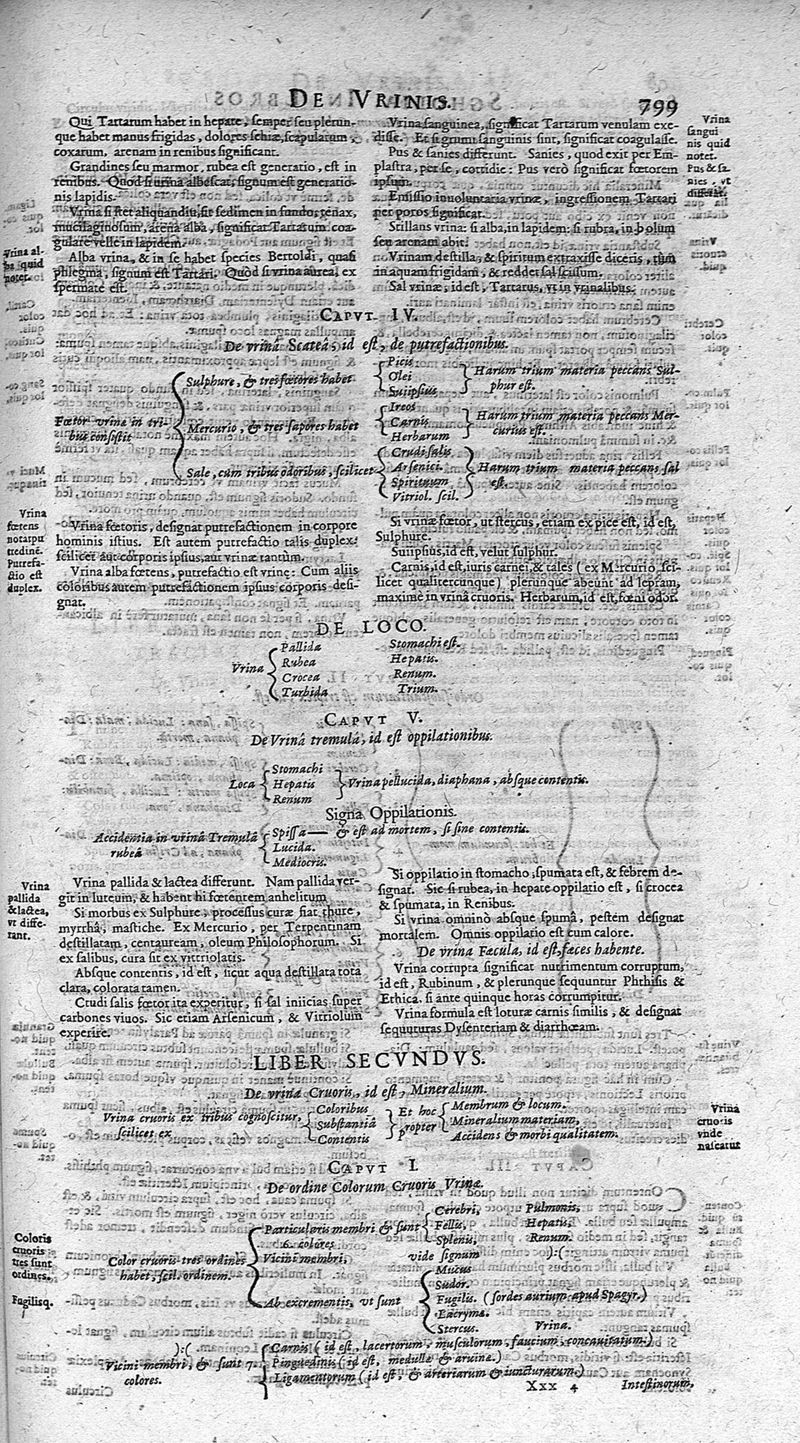 DE VRINIS.
799
Qui Tartarum habet in hepate, semper seu plerun-
que habet manus frigidas, dolores schiæ, scapularum,
coxarum, arenam in renibus significant.
Grandines seu marmor, rubea est generatio, est in
renibus. Quod si urina albescat, signum est generatio-
nis lapidis.
Vrina si stet aliquandiu, sit sedimen in fundo, tenax,
mucilaginosum, arena alba, significat Tartarum coa-
gulare velle in lapidem.
Alba vrina, & in se habet species Bertoldi, quasi
phlegma, signum est Tartari. Quòd si vrina aurea, ex
spermate est.
Vrina al-
ba quid
notet.
Vrina sanguinea, significat Tartarum venulam exe-
disse. Et si grumi sanguinis sint, significat coagulasse.
Pus & sanies differunt. Sanies, quod exit per Em-
plastra, per se, cottidie: Pus verò significat fœtorem
ipsum.
Emissio inuoluntaria vrinæ, ingressionem Tartari
per poros significat.
Stillans vrina: si alba, in lapidem: si rubra, in bolum
seu arenam abit.
Vrinam destilla, & spiritum extraxisse diceris, tum
in aquam frigidam, & reddet sal scissum.
Sal vrinæ, id est, Tartarus, vt in vrinalibus.
Vrina
sangui
nis quid
notet.
Pus & sa-
nies, vt
differãt.
CAPVT IV.
De vrinâ Scateâ, id est, de putrefactionibus.
Fœtor vrinæ in tri-
bus consistit
Sulphure, & tres fœtores habet
Picis
Olei
Suiipsius
Harum trium materia peccans Sul-
phur est.
Mercurio, & tres sapores habet
Ireos
Carnis
Herbarum
Harum trium materia peccans Mer-
curius est.
Sale, cum tribus odoribus, scilicet
Crudi salis
Arsenici.
Spirituum
Vitriol. scil.
Harum trium materia peccans sal
est.
Vrina
fœtens
notat pu
tredinẽ.
Putrefa-
ctio est
duplex.
Vrina fœtoris, designat putrefactionem in corpore
hominis istius. Est autem putrefactio talis duplex:
scilicet aut corporis ipsius, aut vrinæ tantùm.
Vrina alba fœtens, putrefactio est vrinę: Cum aliis
coloribus autem putrefactionem ipsius corporis desi-
gnat.
Si vrinæ fœtor, ut stercus, etiam ex pice est, id est,
Sulphure.
Suiipsius, id est, velut sulphur.
Carnis, id est, iuris carnei, & tales (ex Mercurio, sci-
licet qualitercunque) plerunque abeunt ad lepram,
maximè in vrinâ cruoris. Herbarum, id est, fœni odor.
DE LOCO.
Vrina
Pallida Stomachi est.
Rubea Hepatis.
Crocea Renum.
Turbida Trium.
CAPVT V.
De Vrinâ tremulâ, id est oppilationibus.
Loca
Stomachi
Hepatis
Renum
Vrina pellucida, diaphana, absque contentis.
Signa Oppilationis.
Accidentia in vrinâ Tremulâ
rubeâ
Spissa — & est ad mortem, si sine contentis.
Lucida.
Mediocris.
Vrina
pallida
& lactea,
vt diffe-
rant.
Vrina pallida & lactea differunt. Nam pallida ver-
git in luteum, & habent hi fœtentem anhelitum.
Si morbus ex Sulphure, processus curæ fiat thure,
myrrhâ, mastiche. Ex Mercurio, per Terpentinam
destillatam, centauream, oleum Philosophorum. Si
ex salibus, cura sit ex vittriolatis.
Absque contentis, id est, sicut aqua destillata tota
clara, colorata tamen.
Ctudi salis fœtor ita experitur, si sal iniicias super
carbones viuos. Sic etiam Arsenicum, & Vitriolum
experire.
Si oppilatio in stomacho, spumata est, & febrem de-
signat. Sic si rubea, in hepate oppilatio est, si crocea
& spumata, in Renibus.
Si vrina omninò absque spumâ, pestem designat
mortalem. Omnis oppilatio est cum calore.
De vrina Fœcula, id est, fœces habente.
Vrina corrupta significat nutrimentum corruptum,
id est, Rubinum, & plerunque sequuntur Phthisis &
Ethica. si ante quinque horas corrumpitur.
Vrina formula est loturæ carnis similis, & designat
sequuturas Dysenteriam & diarrhœam.
LIBER SECVNDVS.
De vrina Cruoris, id est, Mineralium.
Vrina cruoris ex tribus cognoscitur,
scilicet ex
Coloribus
Substantiâ
Contentis
Et hoc
propter
Membrum & locum.
Mineralium materiam,
Accidens & morbi qualitatem.
Vrina
cruoris
vnde
nascatur
CAPVT I.
De ordine Colorum Cruoris Vrinæ.
Coloris
cruoris
tres sunt
ordines.
Fugilisq.
Color cruoris tres ordines
habet, scil. ordinem.
Particularis membri & sunt
6. colores
Cerebri, Pulmonis,
Fellis, Hepatis,
Splenis, Renum.
Vicini membri, vide signum ):(
Ab excrementis, vt sunt
Mucus
Sudor.
Fugilis. (sordes aurium apud Spagyr.)
Lacryma.
Stercus. Vrina.
):(
Vicini membri, & sunt 7.
colores.
Carnis (id est, lacertorum, musculorum, faucium, concauitatum.)
Pinguedinis (id est, medullæ & aruinæ.)
Ligamentorum (id est, & arteriarum & iuncturarum.)
Xxx 4
Intestinorum,